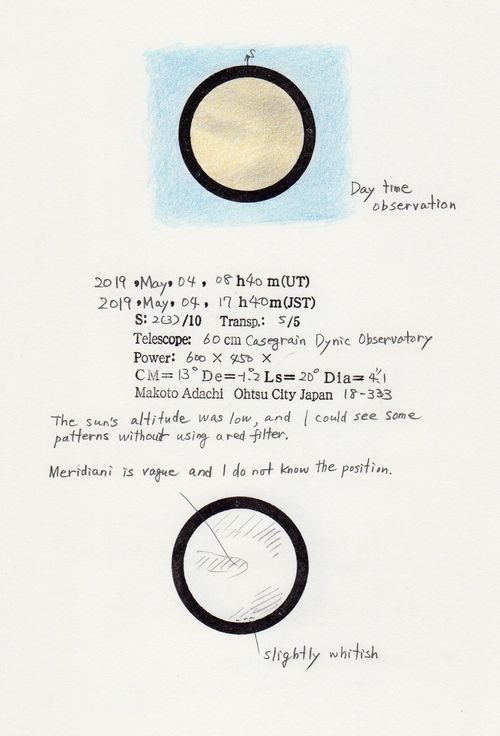 S
Day time
observation
2019, May, 04, 08 h 40 m (UT)
2019, May, 04, 17 h 40 m (JST)
S: 2(3)/10 Transp.: 5/5
Telescope: 60 cm Casegrain Dynic Observatory
Power: 600 × 450 ×
CM= 13° De= -1.2 Ls= 20° Dia= 4".1
Makoto Adachi Ohtsu City Japan 18-333
The sun's altitude was low, and I could see some
patterns without using a red filter.
Meridiani is vague and I do not know the position.
slightly whitish